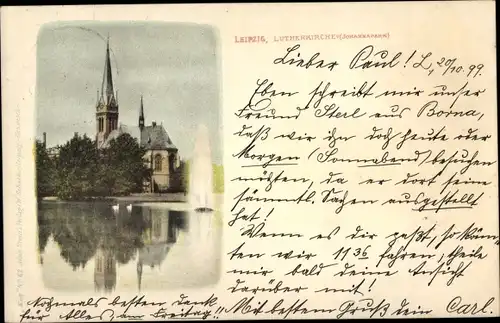 LEIPZIG, LUTHERKIRCHE (JOHANNAPARK)
Lieber Paul! L, 20/10.99
Eben schreibt mir unser
Freund Sterl aus Borna,
daß wir ihn doch heute oder
Morgen (Sonnabend) besuchen
möchten, da er dort seine
sämmtl. Sachen ausgestellt
hat!
Wenn es dir paßt, so könn-
ten wir 11 36 fahren, theile
mir bald deine Ansicht
darüber mit!
Nochmals besten Dank
für Alles, am Freitag!!
Mit bestem Gruß dein Carl.